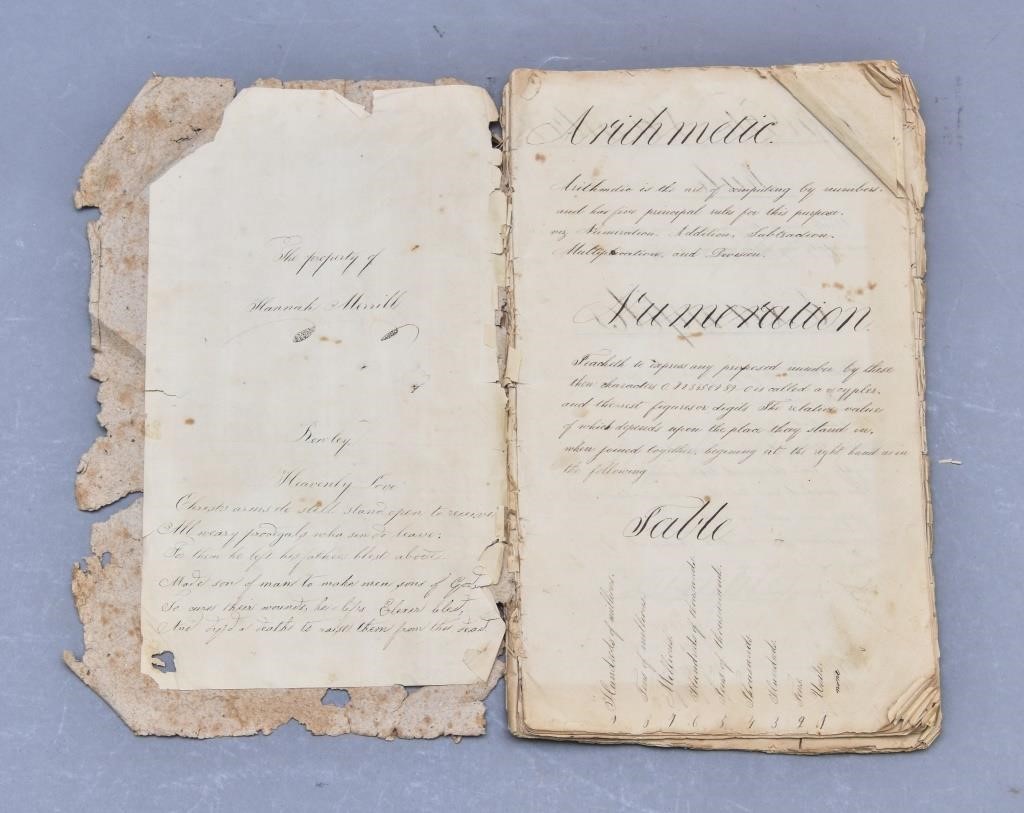 The property of
Hannah Merrill
Rowley
Heavenly Love
Christs arms do still stand open to receive
All weary prodigals who sin do leave;
For them he left his fathers blest above
Made son of man to make men sons of God
To cure their wounds, he life's Elexer bled,
And dy'd a deaths to raise them from the dead.
Arithmetic.
Arithmetic is the art of computing by numbers.
and has five principal rules for this purpose.
viz Numeration. Addition, Subtraction.
Multiplication, and Division.
Numeration.
Teacheth to express any proposed number by these
then characters 0 1 2 3 4 5 6 7 8 9. 0 is called a cypher,
and the rest figures or digits The relative value
of which depends upon the place they stand in,
when joined together, begining at the right hand as in
the following
Table
Hundreds of millions.
Tens of millions.
Millions.
Hundreds of thousands
Tens of thousand.
Thousands
Hundreds.
Tens.
Units.
8 7 6 5 4 3 2 1